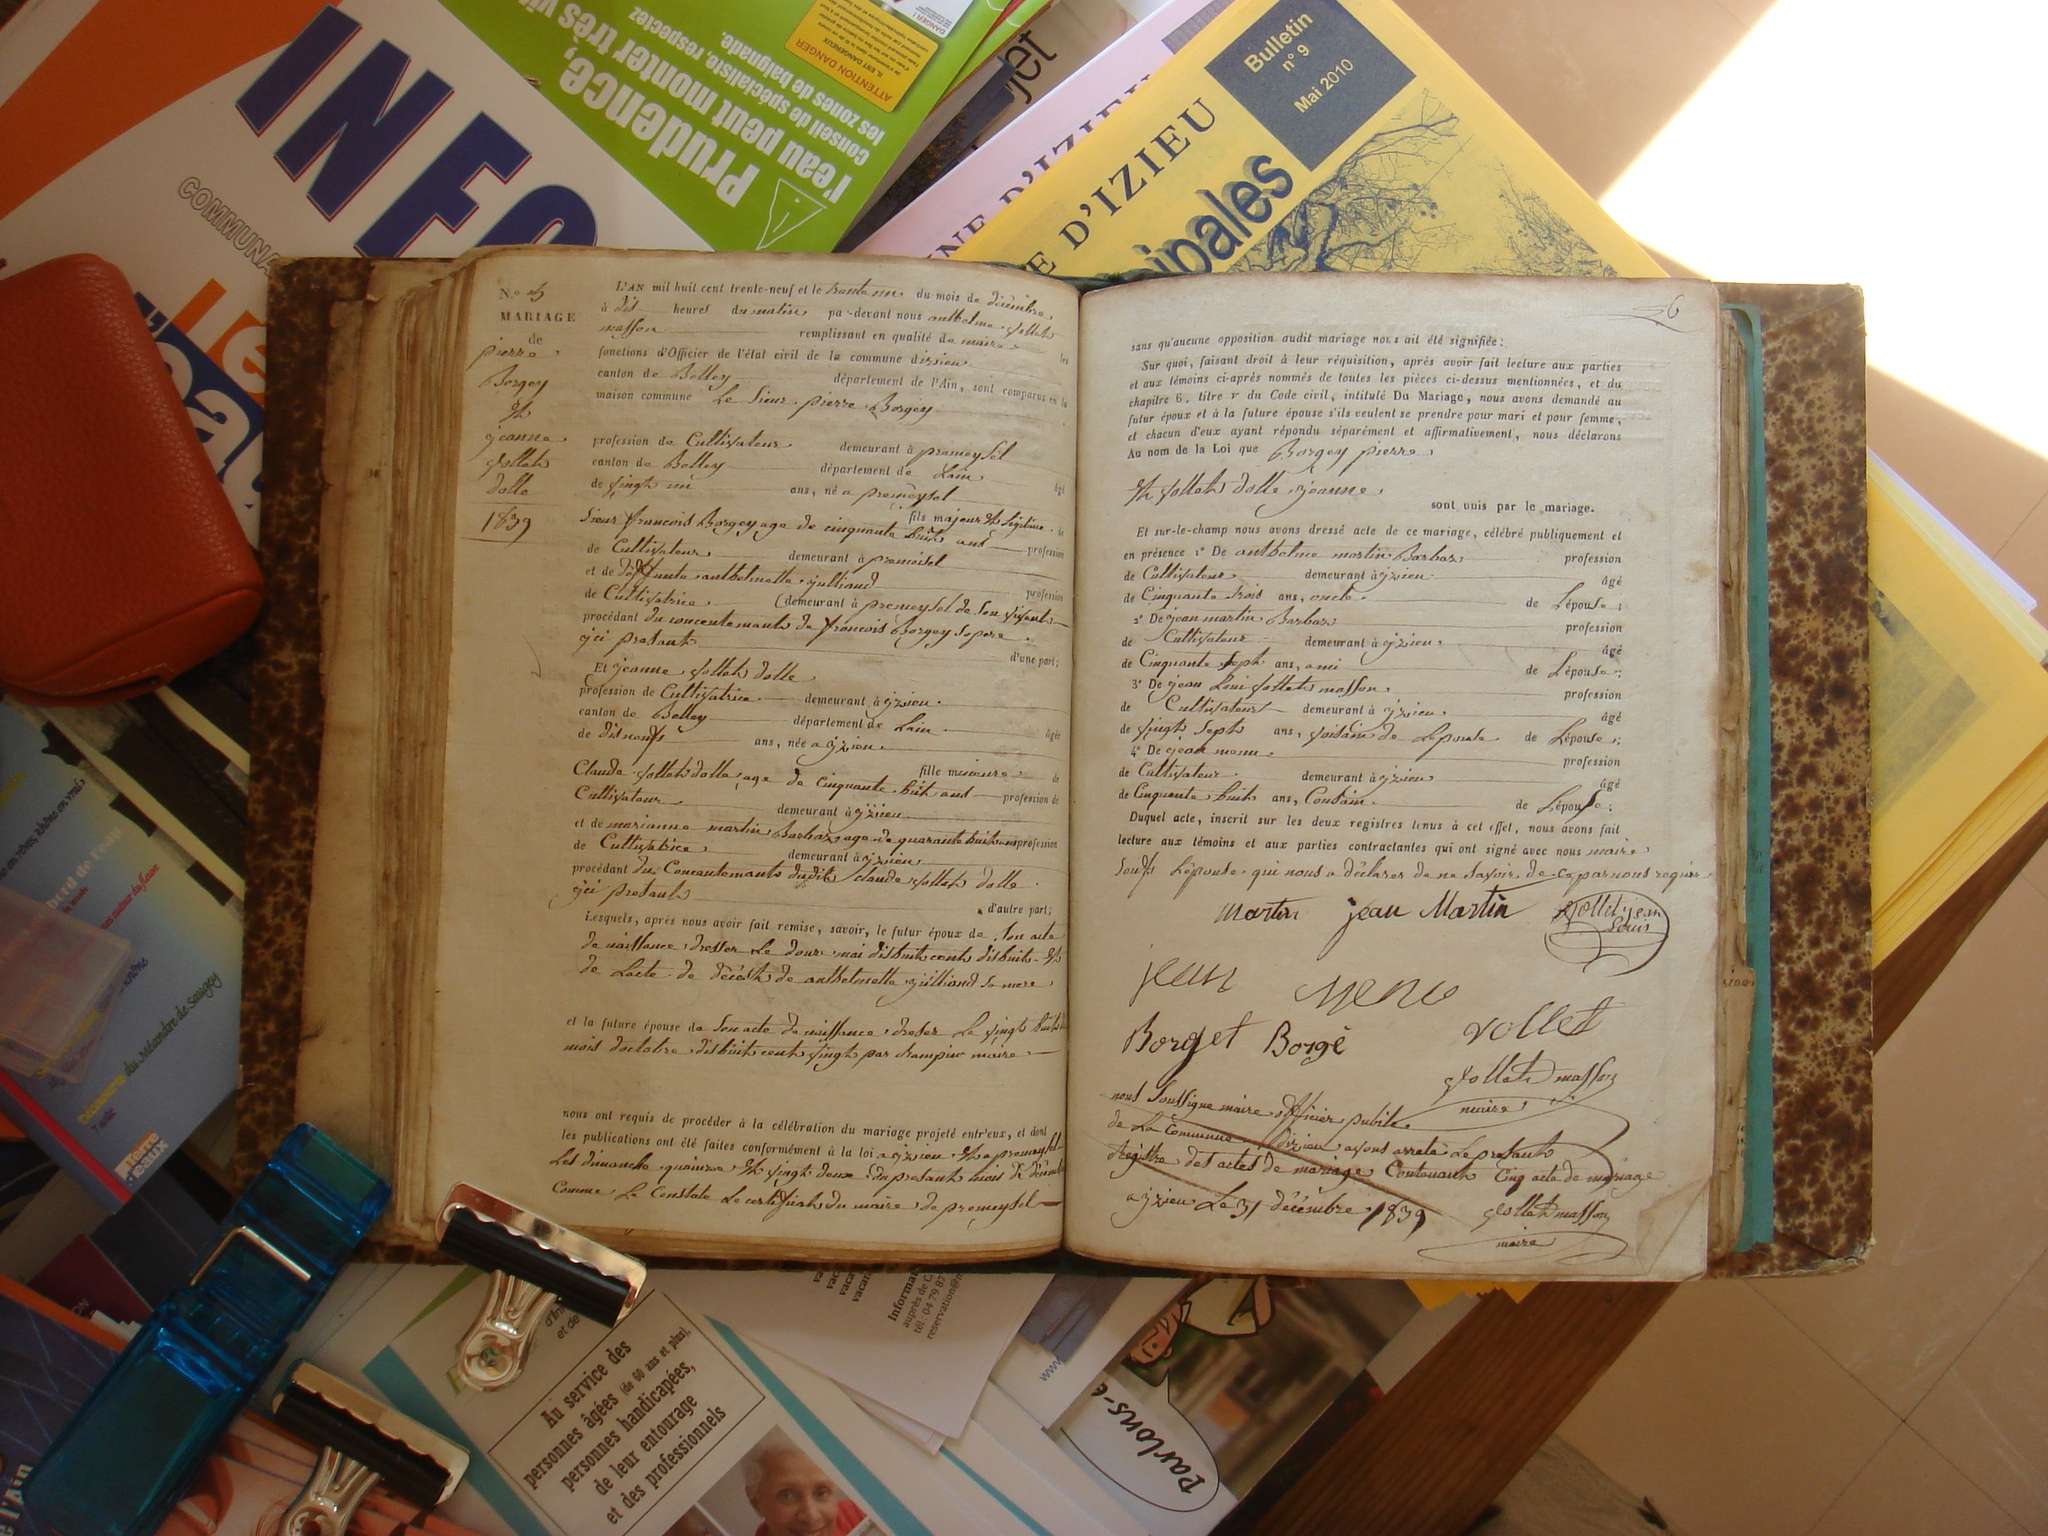 INFO
COMMUNA
Prudence,
l'eau peut monter très vi
conseil de spécialiste, respectez
les zones de baignade.
ATTENTION DANGER
Bulletin
n° 9
Mai 2010
NE D'IZIEU
E D'IZIEU
ipales
N.o
MARIAGE
de
pierre
Borgey
et
jeanne
Vollet
dolle
1839
L'AN mil huit cent trente-neuf et le trente un du mois de décembre
à dis heures du matin par-devant nous anthelme Vollet
masson remplissant en qualité de maire les
fonctions d'Officier de l'état civil de la commune dizieu
canton de Belley département de l'Ain, sont comparus en la
maison commune Le Sieur pierre Borgey
profession de Cultivateur demeurant à premeysel
canton de Belley département de Lain âgé
de vingt un ans, né a premeysel
fils majeur et légitime de
Sieur francois Borgey age de cinquante huit ans profession
de Cultivateur demeurant à premeisel
et de deffunte anthelmette julliand profession
de Cultivatrice demeurant à premeysel de son vivant
procédant du concentement de francois Borgey sopere
yci present d'une part;
Et jeanne Vollet dolle
profession de Cultivatrice demeurant à yzieu
canton de Belley département de Lain âgée
de disneuf ans, née a yzieu
fille mineure de
Claude Vollet dolle age de cinquante huit ans profession de
Cultivateur demeurant à yzieu
et de marianne martin Barbaz age de quarante huit ans profession
de Cultivatrice demeurant à yzieu
procédant du Concentement dudit Claude Vollet dolle
yci present d'autre part;
Lesquels, après nous avoir fait remise, savoir, le futur époux de son acte
de naissance dresser le douze mai disbuit cent disbuit et
de Lacte de décest de anthelmette julliand sa mere
et la future épouse de Son acte de naissance dreser Le vingt huit du
mois doctobre disbuit cent vingt par maire
nous ont requis de procéder à la célébration du mariage projeté entr'eux, et dont
les publications ont été faites conformément à la loi a yzieu et a premeysel
Les dimanche quinze et vingt deux du present mois de décembre
Comme Le Constate Le certifficat du maire de premeysel
6
sans qu'aucune opposition audit mariage nous ait été signifiée:
Sur quoi, faisant droit à leur réquisition, après avoir fait lecture aux parties
et aux témoins ci-après nommés de toutes les pièces ci-dessus mentionnées, et du
chapitre 6, titre v du Code civil, intitulé Du Mariage, nous avons demandé au
futur époux et à la future épouse s'ils veulent se prendre pour mari et pour femme;
et chacun d'eux ayant répondu séparément et affirmativement, nous déclarons
Au nom de la Loi que Borgey pierre
et Vollet dolle jeanne
sont unis par le mariage.
Et sur-le-champ nous avons dressé acte de ce mariage, célébré publiquement et
en présence 1° De anthelme martin Barbaz profession
de Cultivateur demeurant à yzieu âgé
de Cinquante trois ans, oncle de Lépouse;
2° De jean martin Barbaz profession
de Cultivateur demeurant à yzieu âgé
de Cinquante Sept ans, ami de Lépouse;
3° De jean Loui Vollet masson profession
de Cultivateur demeurant à yzieu âgé
de vingt Sept ans, voisain de Lépouse de Lépouse;
4° De jean menu profession
de Cultivateur demeurant à yzieu âgé
de Cinquante huit ans, Cousain de Lépouse;
Duquel acte, inscrit sur les deux registres tenus à cet effet, nous avons fait
lecture aux témoins et aux parties contractantes qui ont signé avec nous maire
Souf Lépouse qui nous a déclarer de ne Savoir de ce par nous requis
Martin jean Martin Vollet jean
Louis
jean Menu
Borget Borgé vollet
Vollet masson
maire
nous Soussigne maire officier publie
de La Commune dizieu avons arreté Le present
Régistre des actes de mariage Contenant Cinq acte de mariage
a yzieu Le 31 décembre 1839
Vollet masson
maire
Découverte du méandre de Saugey
Terre
d'eaux
Au service des
personnes âgées (de 60 ans et plus),
personnes handicapées,
de leur entourage
et des professionnels
auprès de C
tél : 04 79 87
reservation@
www
Parlons-e
e l'Ain